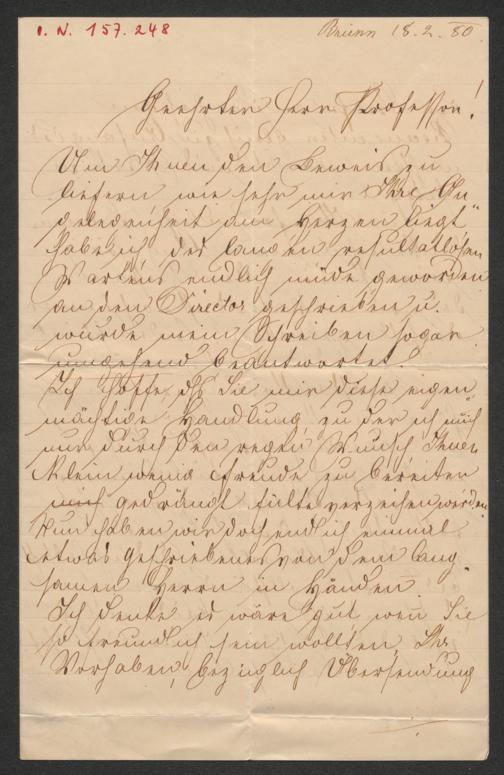 I. N. 157.248
Brünn 18.2.80
Geehrter Herr Professor!
Um Ihnen den Beweis zu
liefern wie sehr mir Ihre An
gelegenheit am Herzen liegt
habe ich des langen resultatlosen
Wartens endlich müde geworden
an den Director geschrieben u.
wurde mein Schreiben sogar
umgehend beantwortet.
Ich hoffe, dß Sie mir diese eigen
mächtige Handlung zu der ich mich
nur durch den regen Wunsch Ihnen
klein wenig Freude zu bereiten
gedrängt fühlte verzeihen werden
Nun haben wir doch endlich einmal
etwas geschriebenes von dem lang
samen Herrn in Händen
Ich denke es wäre gut wenn Sie
so freundlich sein wollten, Ihr
Vorhaben, bezüglich Übersendung